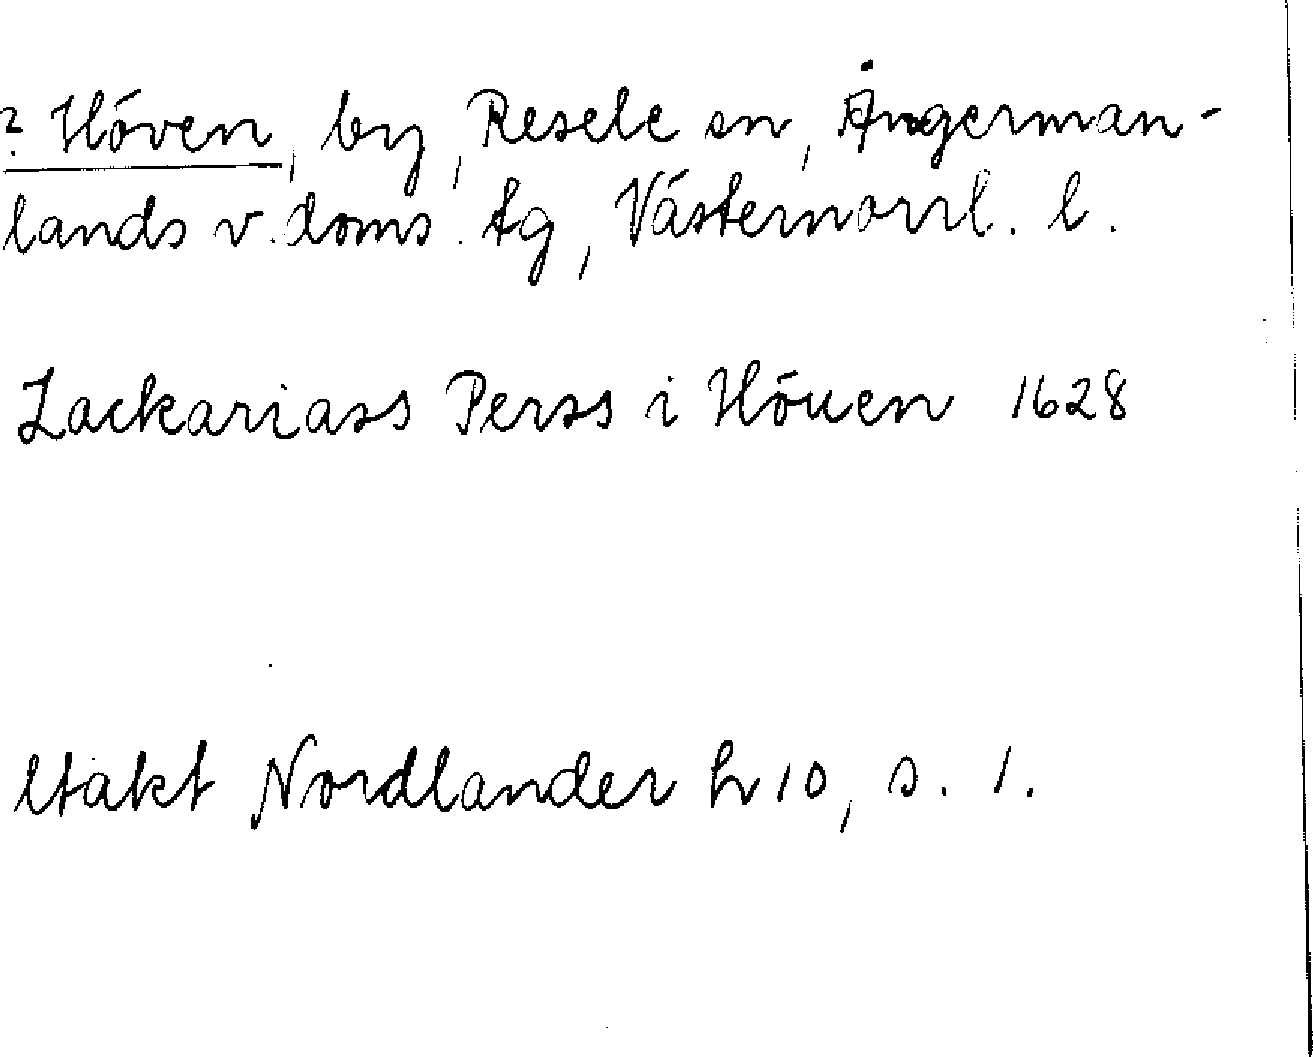 ? Höven, by, Resele sn, Ångerman-
lands v. doms. tg, Västernorrl. l.
Zackariass Perss i Höuen 1628
Utakt Nordlander h 10, s. 1.